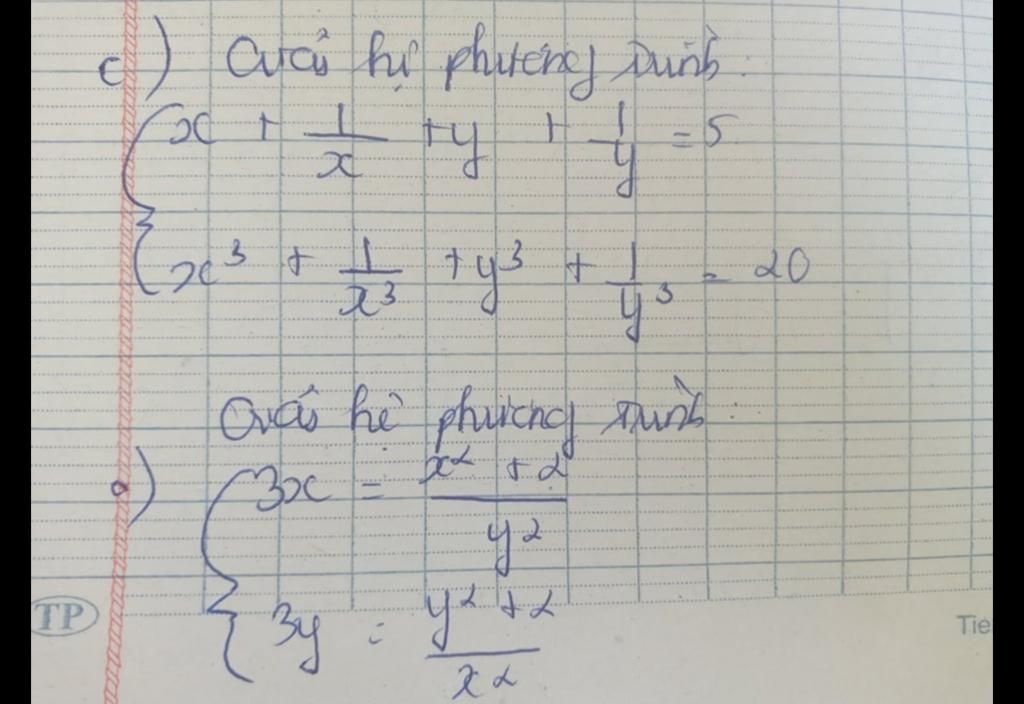 c) Giải hệ phương trình:
x + 1/x + y + 1/y = 5
x³ + 1/x³ + y³ + 1/y³ = 20
Giải hệ phương trình:
a) 3x = (x² + 2)/y²
3y = (y² + 2)/x²
TP
Tie